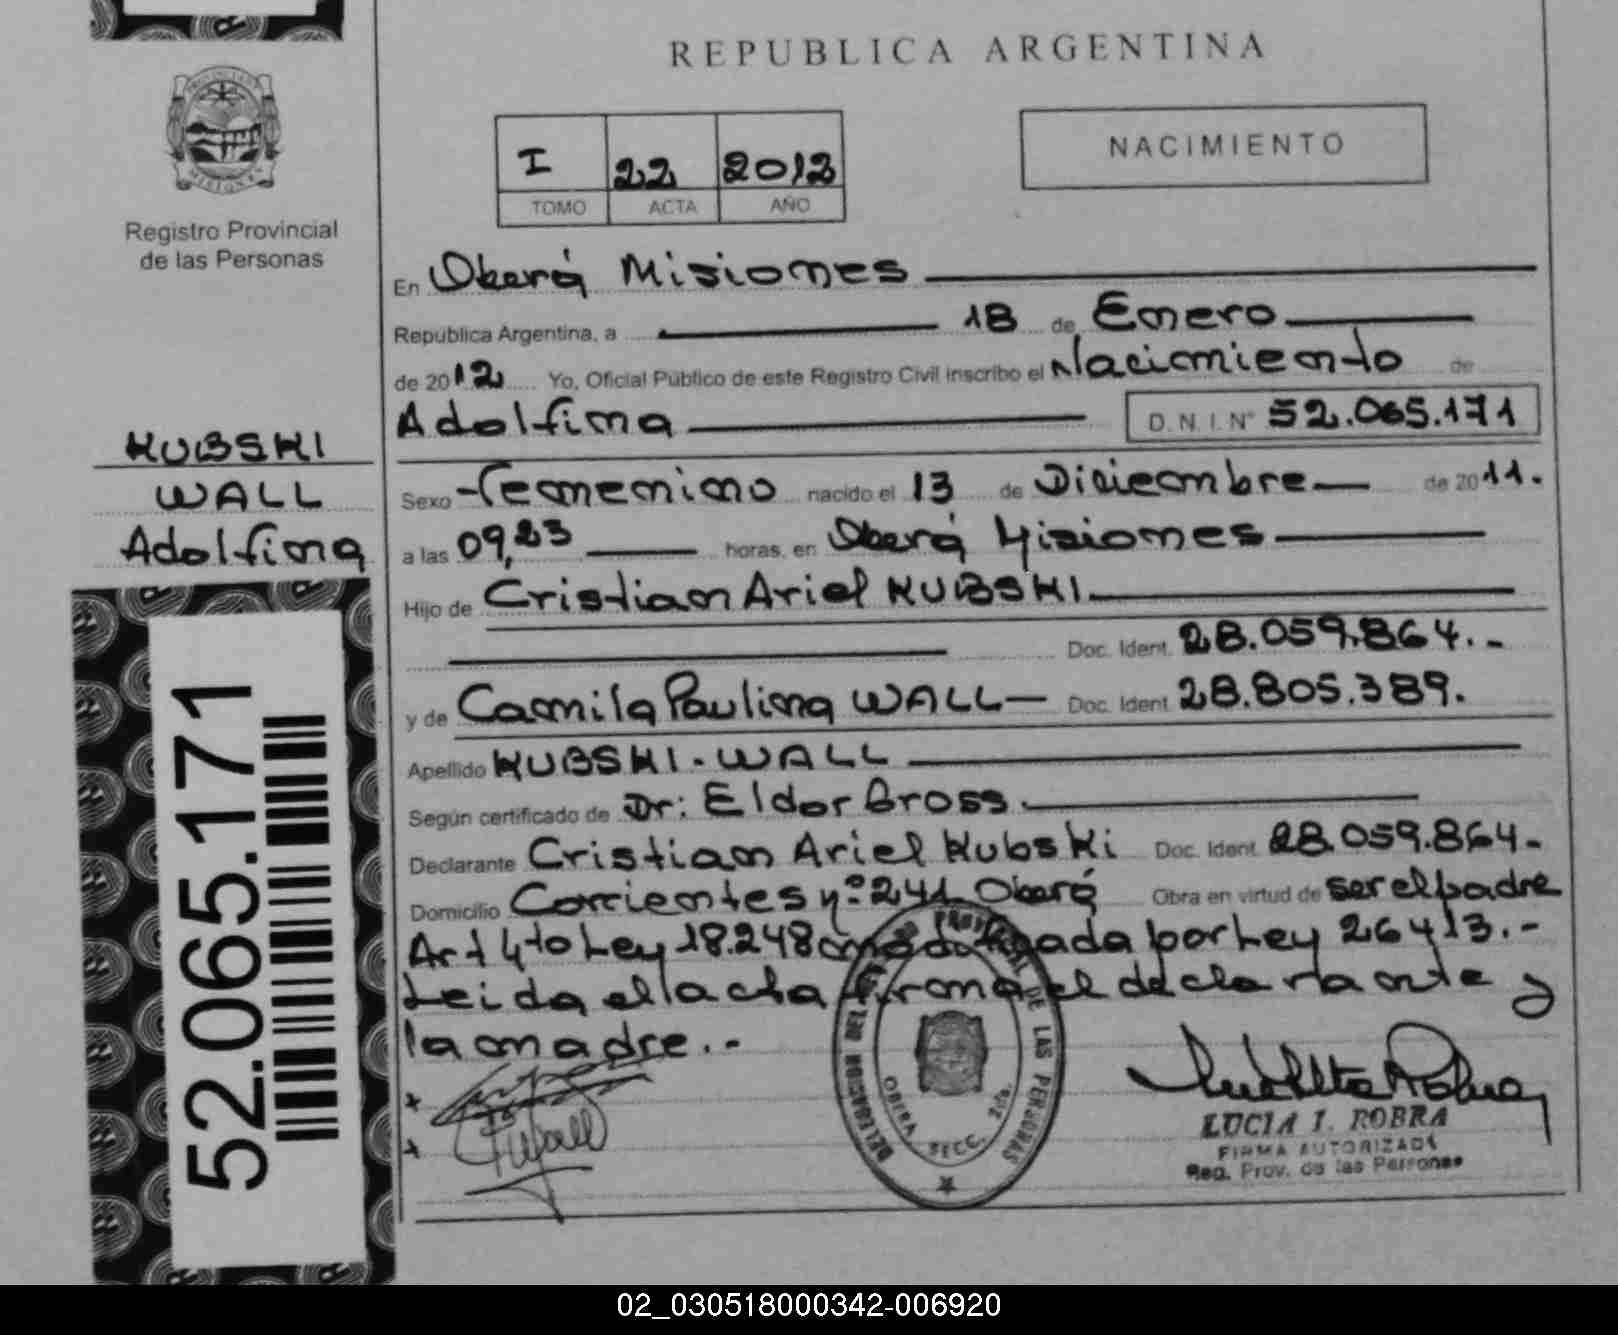 REPUBLICA ARGENTINA
PROVINCIA DE
MISIONES
Registro Provincial
de las Personas
I 22 2012
TOMO ACTA AÑO
NACIMIENTO
En Oberá Misiones
República Argentina, a 18 de Enero
de 2012 Yo, Oficial Público de este Registro Civil inscribo el Nacimiento de
Adolfina D.N.I. N° 52.065.171
KUBSKI
WALL
Adolfina
Sexo Femenino nacido el 13 de Diciembre de 2011.
a las 09,23 horas, en Oberá Misiones
Hijo de Cristian Ariel KUBSKI
Doc. Ident. 28.059.864.-
y de Camila Paulina WALL Doc. Ident. 28.805.389.
Apellido KUBSKI-WALL
Según certificado de Dr: Eldor Gross.
Declarante Cristian Ariel Kubski Doc. Ident. 28.059.864-
Domicilio Corrientes nº 241 Oberá Obra en virtud de ser el padre
Art 4to Ley 18.248 modificada por Ley 26413.-
Leida el acta firma el declarante y
la madre.-
52.065.171
DELEGACION DEL REG. PROVINCIAL DE LAS PERSONAS
OBERA SECC. 2da.
LUCIA I. ROBRA
FIRMA AUTORIZADA
Reg. Prov. de las Personas
02_030518000342-006920